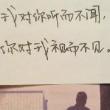 我对你听而不闻,
你对我视而不见。